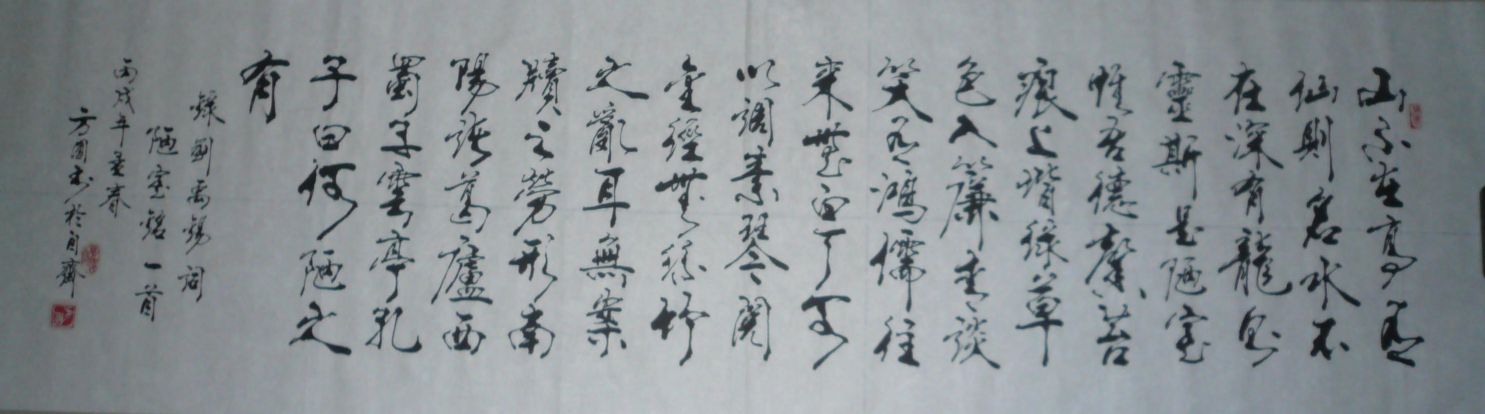 山不在高有
仙則名水不
在深有龍則
靈斯是陋室
惟吾德馨苔
痕上堦緑草
色入簾青談
笑有鴻儒往
来無白丁可
以調素琴閲
金經無絲竹
之亂耳無案
牘之勞形南
陽諸葛廬西
蜀子雲亭孔
子曰何陋之
有
録劉禹錫詞
陋室銘一首
丙戌年孟春
方圓書於自齋